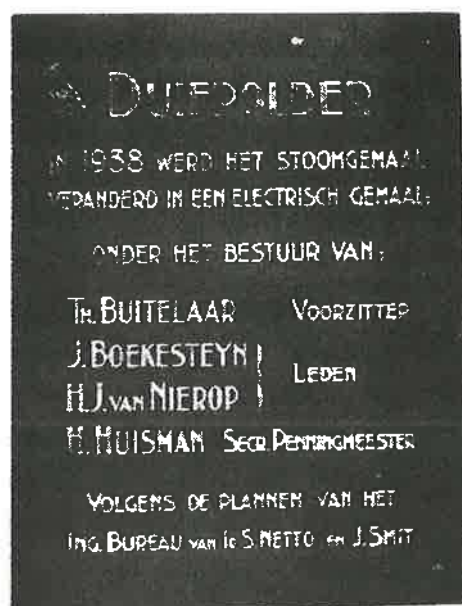 DUIFPOLDER
IN 1938 WERD HET STOOMGEMAAL
VERANDERD IN EEN ELECTRISCH GEMAAL.
ONDER HET BESTUUR VAN:
TH. BUITELAAR VOORZITTER
J. BOEKESTEYN
LEDEN
H.J. VAN NIEROP
H. HUISMAN SECR. PENNINGMEESTER
VOLGENS DE PLANNEN VAN HET
ING. BUREAU VAN Ir S. NETTO EN J. SMIT